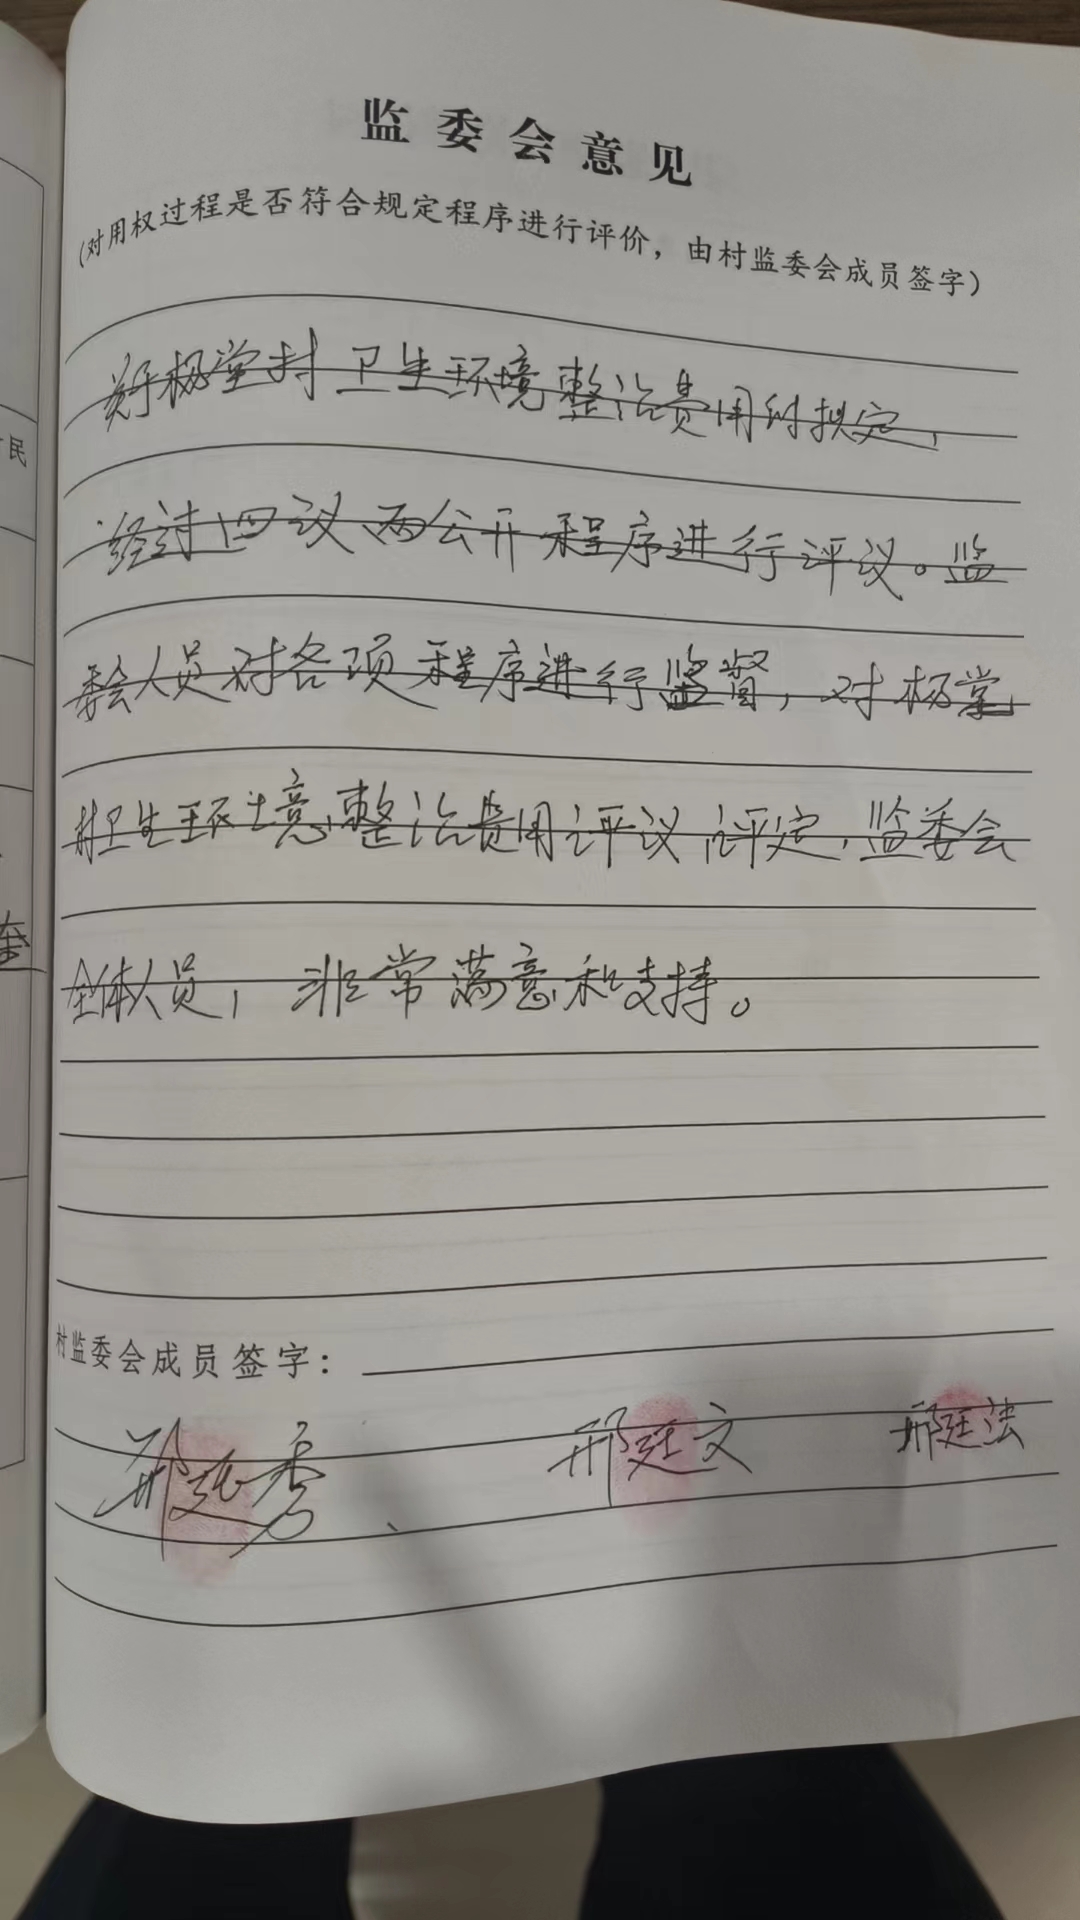 监委会意见
(对用权过程是否符合规定程序进行评价，由村监委会成员签字)
郑杨堂村卫生环境整治费用的拟定，
经过四议两公开程序进行评议。监
委会人员对各项程序进行监督，对杨堂
村卫生环境整治费用评议评定，监委会
全体人员，非常满意和支持。
村监委会成员签字：
邢廷秀 邢廷文 邢廷法
民